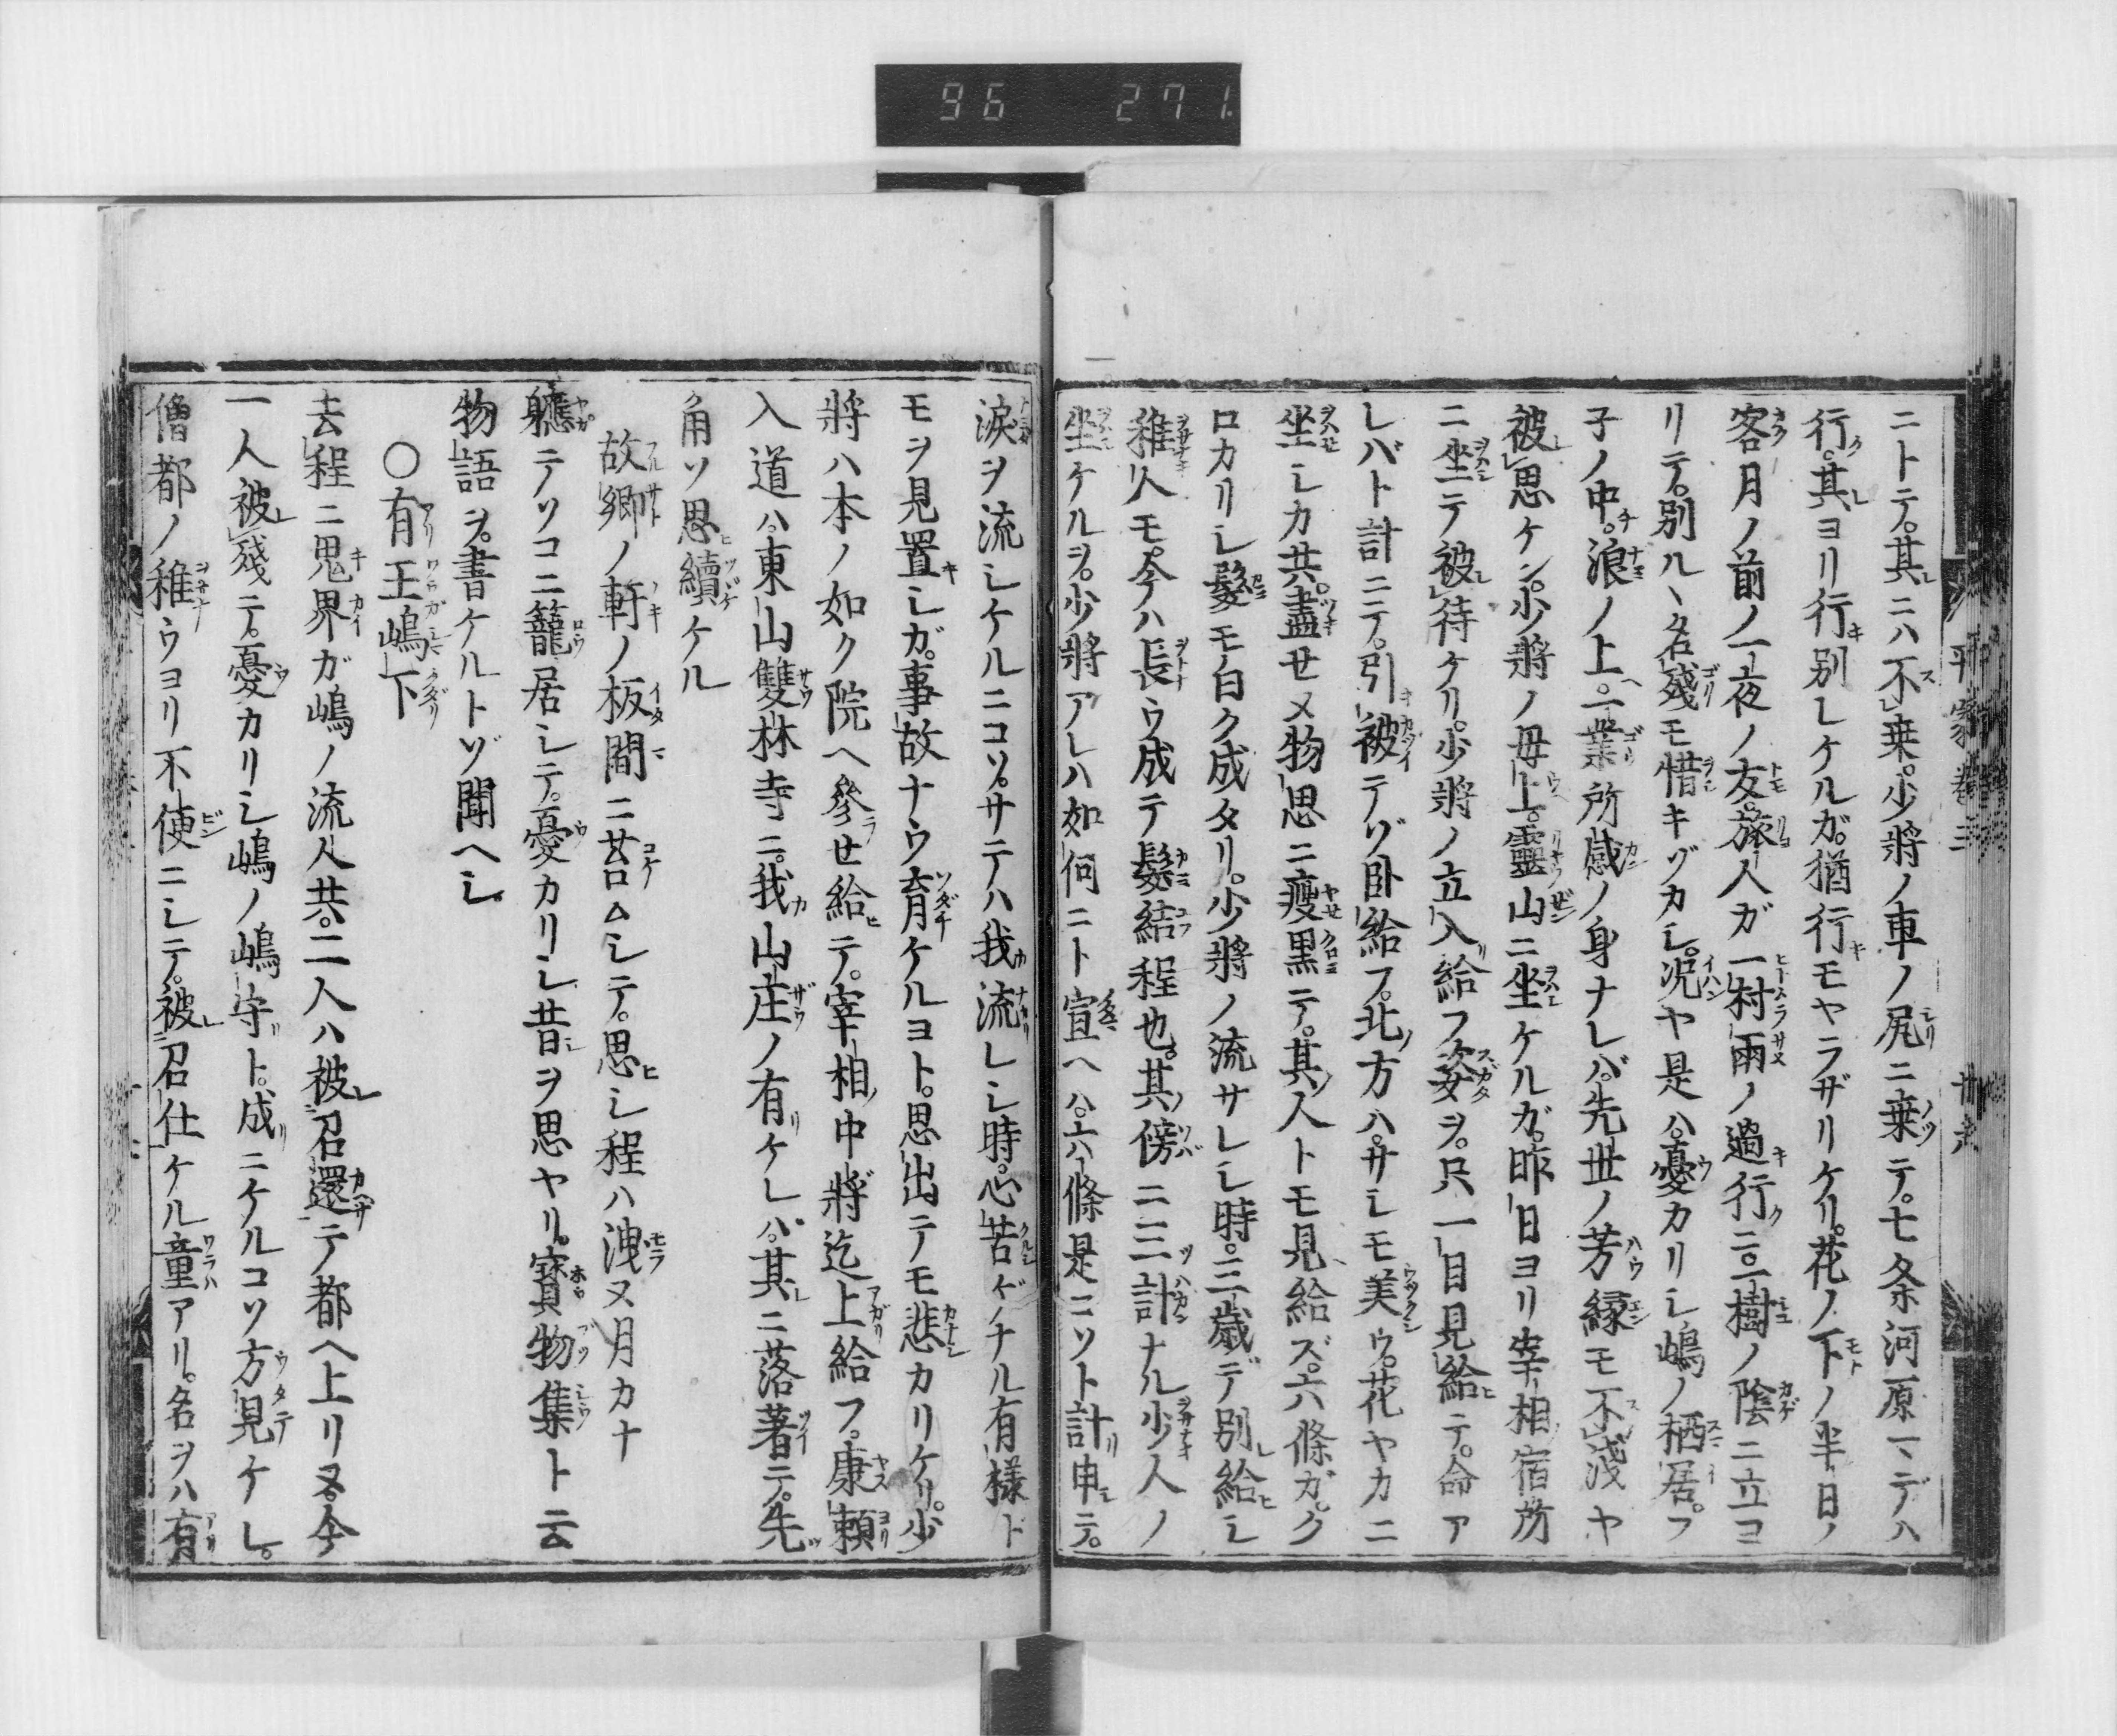 96 271
平家巻三
ニトテ。其ニハ不乗。少將ノ車ノ尻ニ乗テ。七条河原マデハ
行。其ヨリ行別レケルガ。猶行モヤラザリケリ。花ノ下ノ半日ノ
客。月ノ前ノ一夜ノ友。旅人ガ一村雨ノ過行ニ。一樹ノ陰ニ立ヨ
リテ。別ルヽ名殘モ惜キゾカシ。况ヤ是ハ。憂カリシ嶋ノ栖居。フ
子ノ中。浪ノ上。一業所感ノ身ナレバ。先世ノ芳縁モ不淺ヤ
被思ケン。少將ノ母上。靈山ニ坐ケルガ。昨日ヨリ宰相宿所
ニ坐テ被待ケリ。少將ノ立入給フ姿ヲ。只一目見給テ。命ア
レバト計ニテ。引被テゾ臥給フ。北方ハ。サシモ美ウ。花ヤカニ
坐シカ共。盡せヌ物思ニ瘦黒テ。其人トモ見給ズ。六條ガ。ク
ロカリシ髮モ白ク成タリ。少將ノ流サレシ時。三歳デ別給シ
稚人モ。今ハ長ウ成テ髮結程也。其傍ニ三計ナル少人ノ
坐ケルヲ。少將アレハ如何ニト宣ヘハ。六條是ニソト計申テ。
涙ヲ流シケルニコソ。サテハ我流レシ時。心苦ゲナル有樣ト
モヲ見置シガ。事故ナウ育ケルヨト。思出テモ悲カリケリ。少
將ハ本ノ如ク院ヘ參せ給テ。宰相中將迄上給フ。康頼
入道ハ。東山雙林寺ニ。我山庄ノ有ケレバ。其ニ落著テ。先
角ソ思續ケル
故郷ノ軒ノ板間ニ苔ムシテ。思シ程ハ洩ヌ月カナ
軈テソコニ籠居シテ。憂カリシ昔ヲ思ヤリ。寳物集ト云
物語ヲ。書ケルトゾ聞ヘシ
〇有王嶋下
去程ニ鬼界ガ嶋ノ流人共。二人ハ被召還テ都ヘ上リヌ。今
一人被殘テ。憂カリシ嶋ノ嶋守ト。成ニケルコソ方見ケレ。
僧都ノ稚ウヨリ不便ニシテ。被召仕ケル童アリ。名ヲハ有